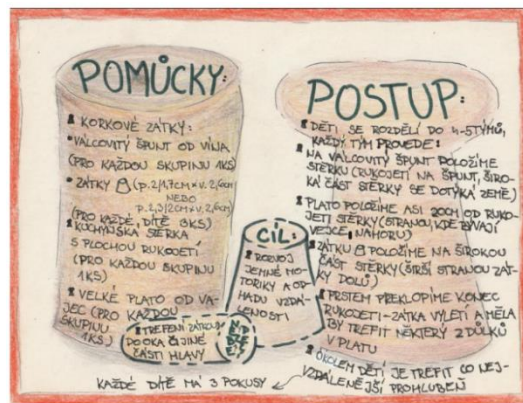 POMŮCKY:
KORKOVÉ ZÁTKY:
• VÁLCOVITÝ ŠPUNT OD VÍNA
(PRO KAŽDOU SKUPINU 1KS)
• ZÁTKY (p. 2/1,7CM x v. 2,6cm
NEBO
p. 2,3/2CM x v. 2,6cm)
(PRO KAŽDÉ, DÍTĚ 3KS)
KUCHYŇSKÁ STĚRKA
S PLOCHOU RUKOJETÍ
(PRO KAŽDOU SKUPINU
1KS)
VELKÉ PLATO OD VA-
JEC (PRO KAŽDOU
SKUPINU
1KS)
CÍL:
ROZVOJ
JEMNÉ MO-
TORIKY A OD-
HADU VZDÁ-
LENOSTI
TREFENÍ ZÁTKOU
DO OKA ČI JINÉ
ČÁSTI HLAVY
POSTUP:
DĚTI SE ROZDĚLÍ DO 4-5 TÝMŮ,
KAŽDÝ TÝM PROVEDE:
NA VÁLCOVITÝ ŠPUNT POLOŽÍME
STĚRKU (RUKOJETÍ NA ŠPUNT, ŠIRO-
KÁ ČÁST STĚRKY SE DOTÝKÁ ZEMĚ)
PLATO POLOŽÍME ASI 20CM OD RUKO-
JETI STĚRKY (STRANOU, KDE BÝVAJÍ
VEJCE, NAHORU)
ZÁTKU POLOŽÍME NA ŠIROKOU
ČÁST STĚRKY (ŠIRŠÍ STRANOU ZÁT-
KY DOLŮ)
PRSTEM PŘEKLOPÍME KONEC
RUKOJETI - ZÁTKA VYLETÍ A MĚLA
BY TREFIT NĚKTERÝ Z DŮLKŮ
V PLATU
ÚKOLEM DĚTÍ JE TREFIT CO NEJ-
VZDÁLENĚJŠÍ PROHLUBEŇ
KAŽDÉ DÍTĚ MÁ 3 POKUSY